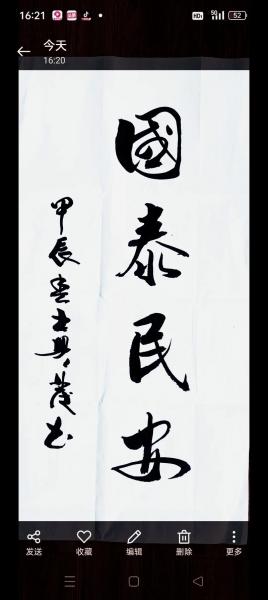 16:21
HD 5G 52
今天
16:20
國泰民安
甲辰
发送 收藏 编辑 删除 更多